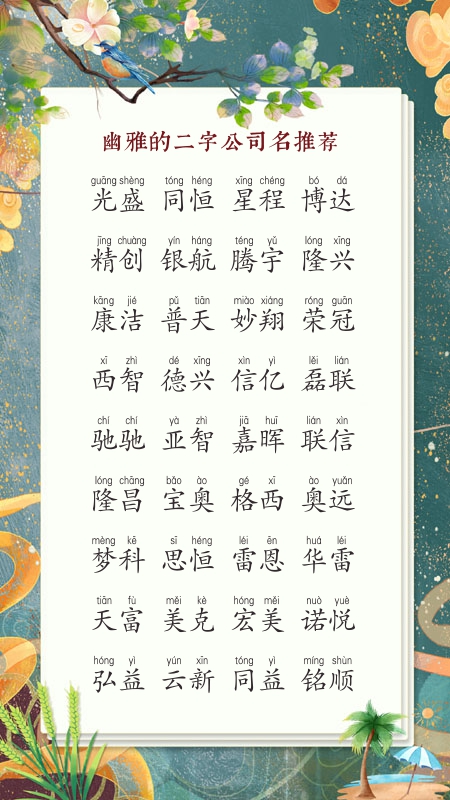 幽雅的二字公司名推荐
guāng shèng tóng héng xīng chéng bó dá
光盛 同恒 星程 博达
jīng chuàng yín háng téng yǔ lóng xīng
精创 银航 腾宇 隆兴
kāng jié pǔ tiān miào xiáng róng guān
康洁 普天 妙翔 荣冠
xī zhì dé xīng xìn yì lěi lián
西智 德兴 信亿 磊联
chí chí yà zhì jiā huī lián xìn
驰驰 亚智 嘉晖 联信
lóng chāng bǎo ào gé xī ào yuǎn
隆昌 宝奥 格西 奥远
mèng kē sī héng léi ēn huá léi
梦科 思恒 雷恩 华雷
tiān fù měi kè hóng měi nuò yuè
天富 美克 宏美 诺悦
hóng yì yún xīn tóng yì míng shùn
弘益 云新 同益 铭顺